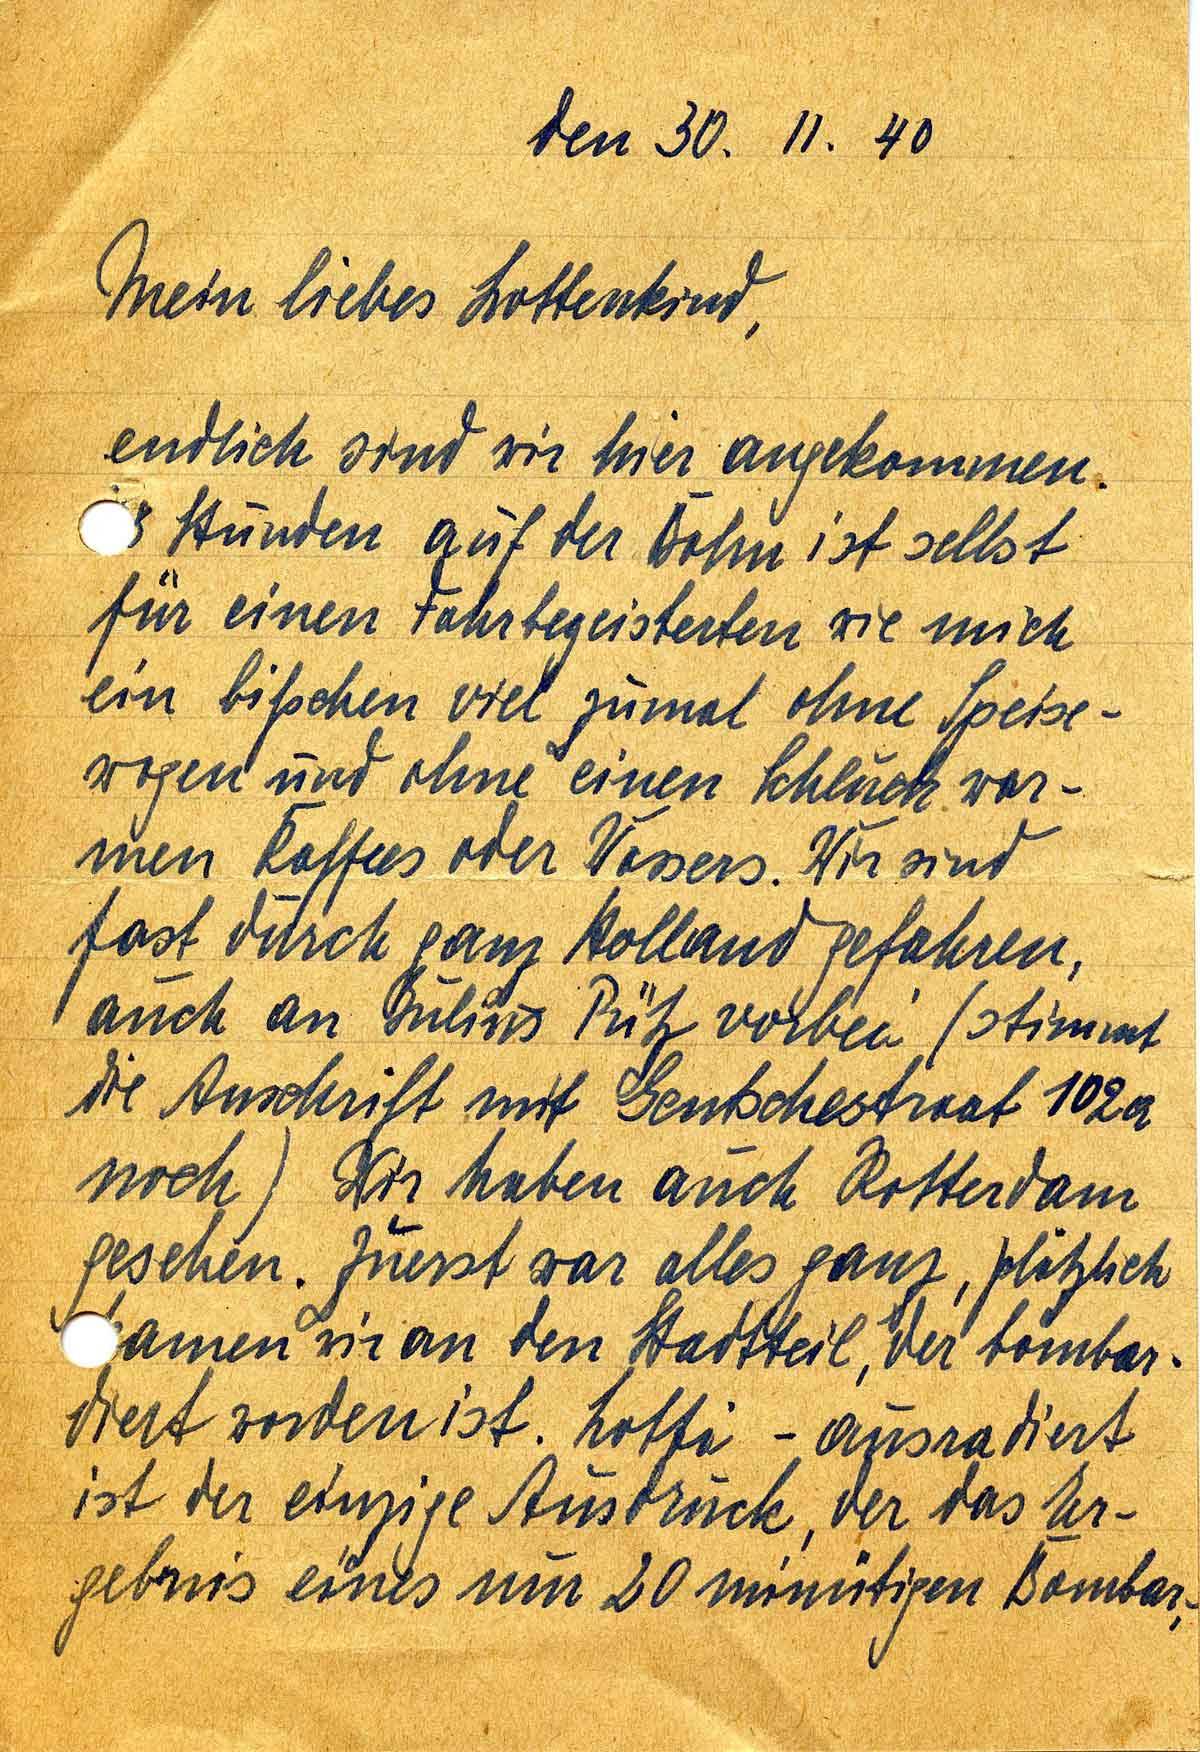 den 30. 11. 40
Mein liebes Lottenkind,
endlich sind wir hier angekommen.
Stunden auf der Bahn ist selbst
für einen Fahrbegeisterten wie mich
ein bißchen viel zumal ohne Speise-
wagen und ohne einen Schluck war-
men Kaffees oder Wassers. Wir sind
fast durch ganz Holland gefahren,
auch an Julius Pütz vorbei (stimmt
die Anschrift mit 102a
noch) Wir haben auch Rotterdam
gesehen. Zuerst war alles ganz, plötzlich
kamen wir an den Stadtteil, der bombar-
diert worden ist. Lotti - ausradiert
ist der einzige Ausdruck, der das Er-
gebnis eines nur 20 minütigen Bombar-